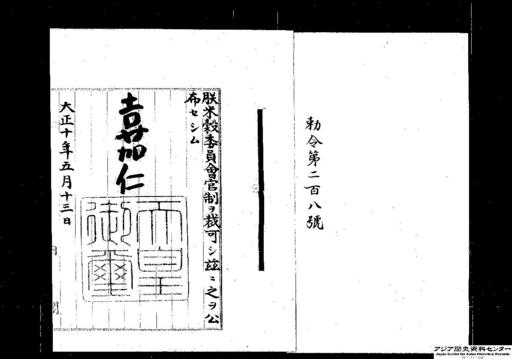 勅令第二百八號
朕米穀委員會官制ヲ裁可シ茲ニ之ヲ公
布セシム
嘉仁
天皇
御璽
大正十年五月十三日
アジア歴史資料センター
Japan Center for Asian Historical Records